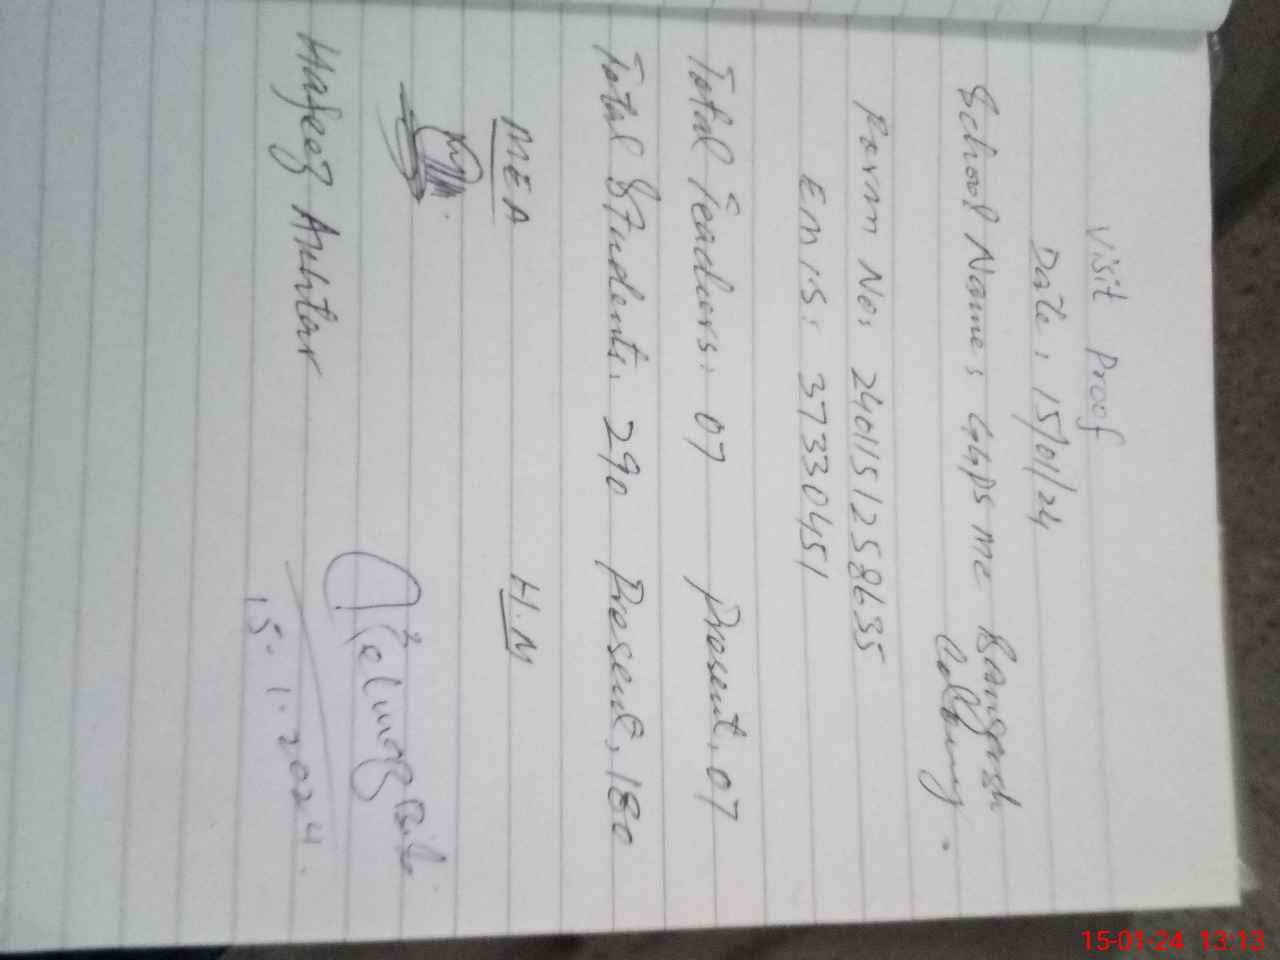 Visit Proof
Date: 15/01/24
School Name: GGPS MC Bangash
Collony.
Form No: 2401151258635
Emis: 37330451
Total Teachers: 07 Present: 07
Total Students: 290 Present: 180
MEA H.M
Hafeez Akhtar
15.1.2024.
15-01-24 13:13